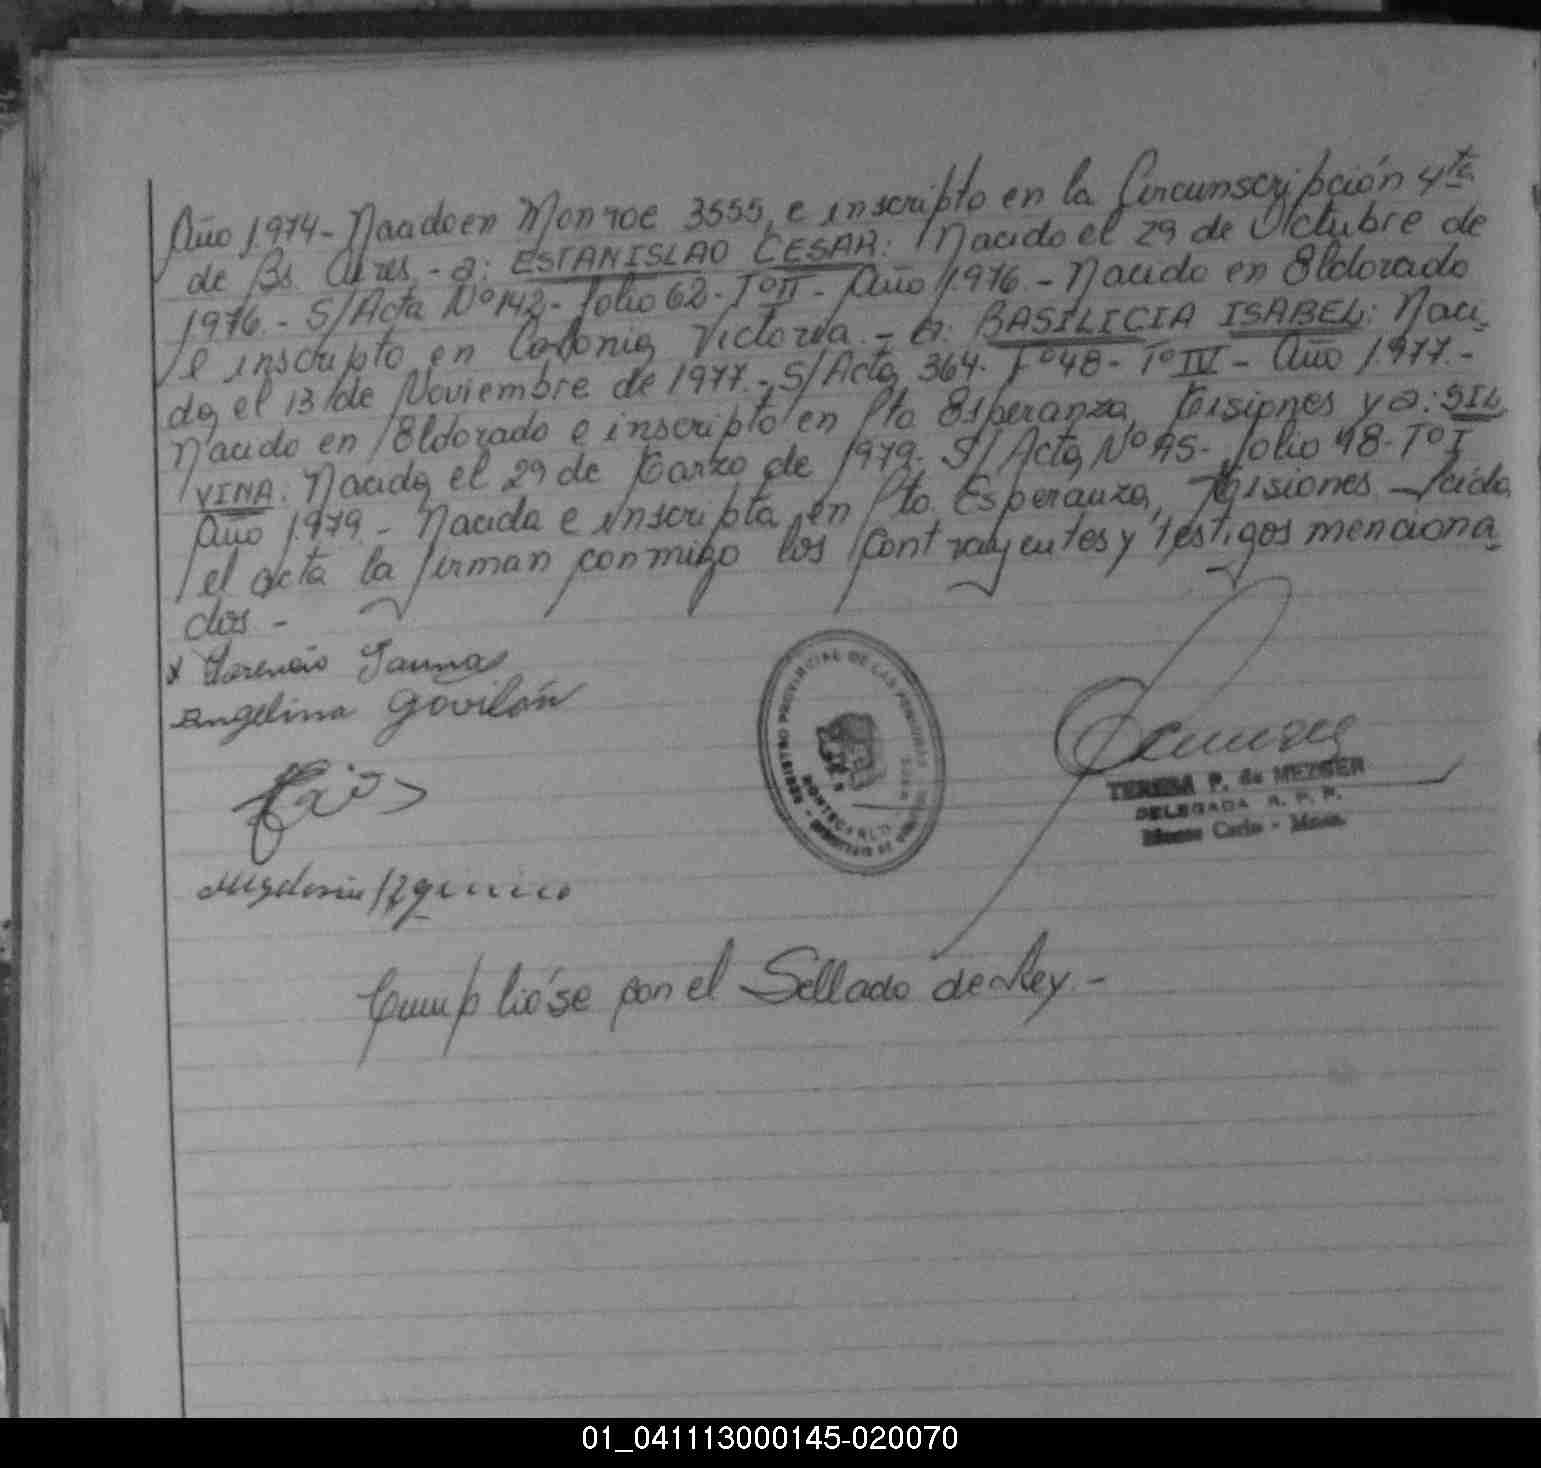 Año 1974 - Nacido en Monroe 3555, e inscripto en la Circunscripción 4ta
de Bs. Aires. - a: ESTANISLAO CESAR: Nacido el 29 de Octubre de
1976. - S/Acta Nº 142 - folio 62 - Tº II - Año 1976 - Nacido en Eldorado
e inscripto en Colonia Victoria. - a: BASILICIA ISABEL: Naci-
da el 13 de Noviembre de 1977. - S/Acta 364. Fº 48 - Tº III - Año 1977. -
Nacido en Eldorado e inscripto en Pto Esperanza, Misiones y a: SIL
VINA: Nacida el 29 de Marzo de 1979. S/Acta Nº 95 - folio 48 - Tº I
Año 1979 - Nacida e inscripta en Pto. Esperanza, Misiones - Leída
el acta la firman conmigo los contrayentes y testigos menciona-
dos -
x
Angelina Gavilán
REGISTRO PROVINCIAL DE LAS PERSONAS
MONTECARLO
TERESA P. de MEZGER
DELEGADA R. P. P.
Monte Carlo - Mnes.
Cumplióse con el Sellado de Ley. -
01_041113000145-020070